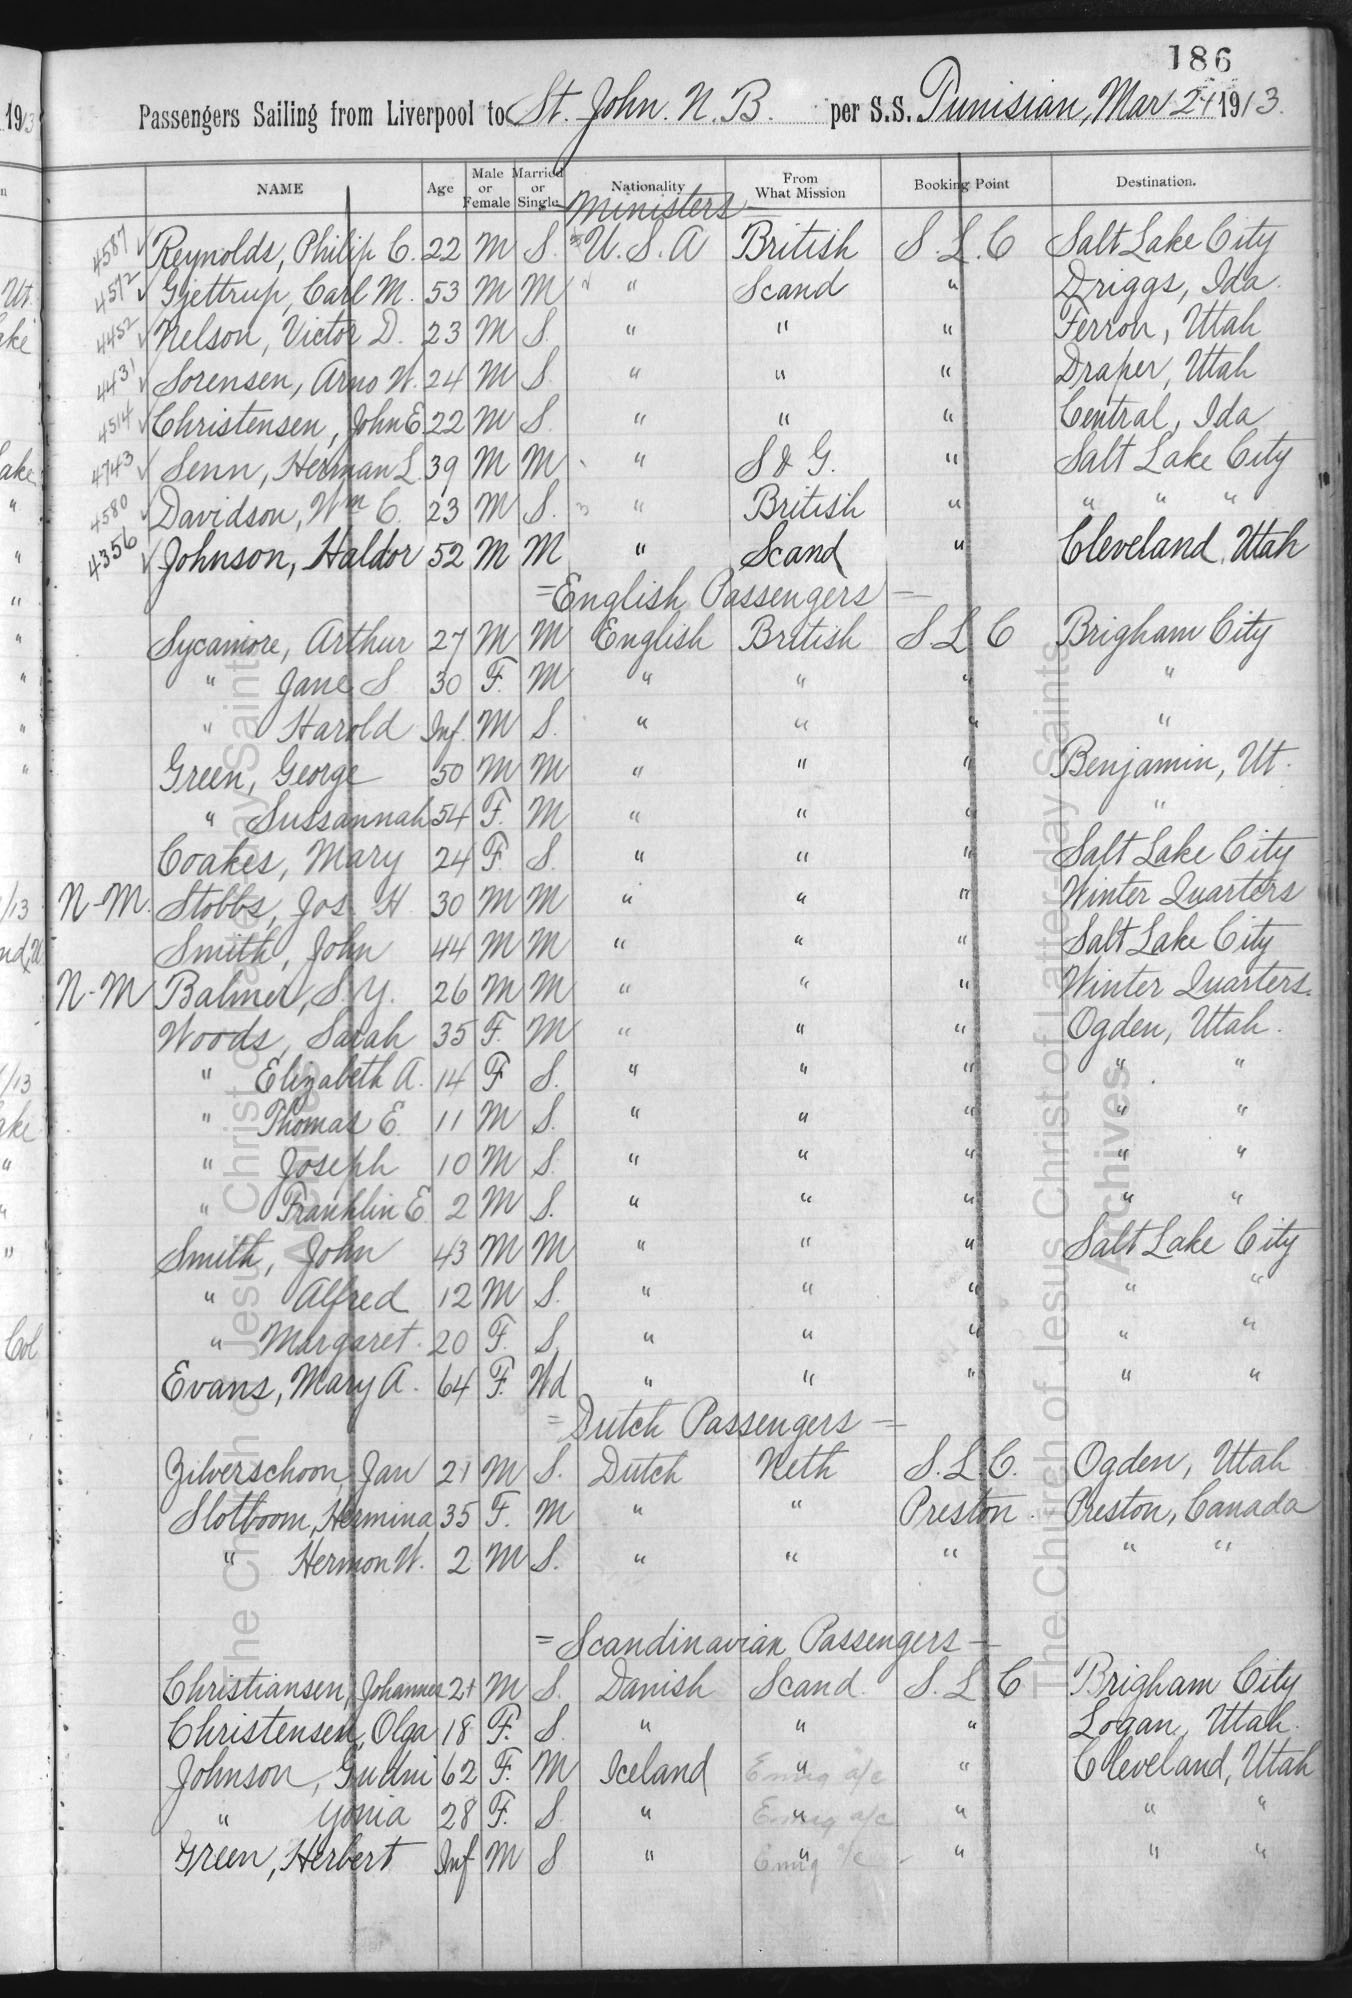 186
Passengers Sailing from Liverpool to St. John. N. B. per S.S. Tunisian, Mar 21 1913.
NAME Age Male or Female Married or Single Nationality From What Mission Booking Point Destination.
Ministers
4587 ✓ Reynolds, Philip C. 22 M S. U. S. A British S. L. C Salt Lake City
4572 ✓ Gjettrup, Carl M. 53 M M " Scand " Driggs, Ida.
4452 ✓ Nelson, Victor D. 23 M S. " " " Ferron, Utah
4431 ✓ Sorensen, Arno W. 24 M S. " " " Draper, Utah
4514 ✓ Christensen, John E. 22 M S. " " " Central, Ida
4743 ✓ Senn, Herman L. 39 M M " S & G. " Salt Lake City
4580 ✓ Davidson, Wm C. 23 M S. " British " " " "
4356 ✓ Johnson, Haldor 52 M M " Scand " Cleveland, Utah
= English Passengers —
Sycamore, Arthur 27 M M English British S L C Brigham City
" Jane S 30 F. M " " " "
" Harold Inf. M S. " " " "
Green, George 50 M M " " " Benjamin, Ut.
" Sussannah 54 F. M " " " "
Coakes, Mary 24 F S. " " " Salt Lake City
N-M. Stobbs, Jos. H 30 M M " " " Winter Quarters
Smith, John 44 M M " " " Salt Lake City
N-M Balmer, S. Y. 26 M M " " " Winter Quarters.
Woods, Sarah 35 F. M " " " Ogden, Utah.
" Elizabeth A. 14 F S. " " " " "
" Thomas E. 11 M S. " " " " "
" Joseph 10 M S. " " " " "
" Franklin E 2 M S. " " " " "
Smith, John 43 M M " " " Salt Lake City
" Alfred 12 M S. " " " " "
" Margaret. 20 F. S. " " " " "
Evans, Mary A. 64 F. Wd " " " " "
= Dutch Passengers —
Zilverschoon, Jan 21 M S. Dutch Neth S. L. C. Ogden, Utah
Slotboom, Hermina 35 F. M " " Preston. Preston, Canada
" Hermon W. 2 M S. " " " " "
= Scandinavian Passengers —
Christiansen, Johannes 21 M S. Danish Scand. S. L C Brigham City
Christensen, Olga 18 F. S. " " " Logan, Utah.
Johnson, Gudni 62 F. M Iceland " Emig a/c " Cleveland, Utah
" Yonia 28 F. S. " " Emig a/c " " "
Green, Herbert Inf M S " " Emig a/c " " "
The Church of Jesus Christ of Latter-day Saints
Archives
The Church of Jesus Christ of Latter-day Saints
Archives